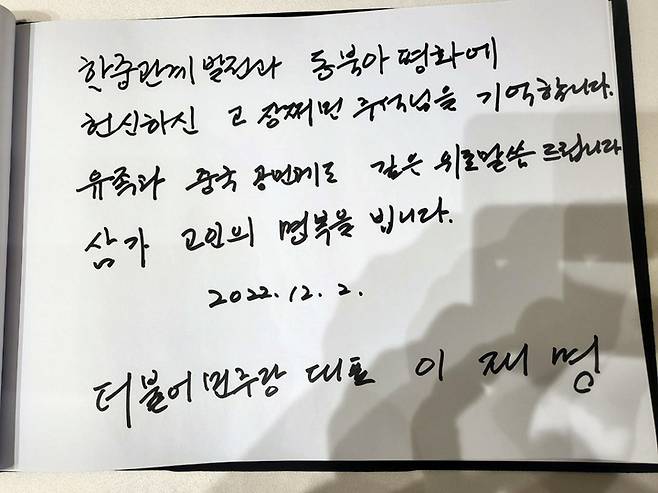 한중관계 발전과 동북아 평화에
헌신하신 고 장쩌민 주석님을 기억합니다.
유족과 중국 인민에게도 깊은 위로말씀 드립니다
삼가 고인의 명복을 빕니다.
2022. 12. 2.
더불어민주당 대표 이재명